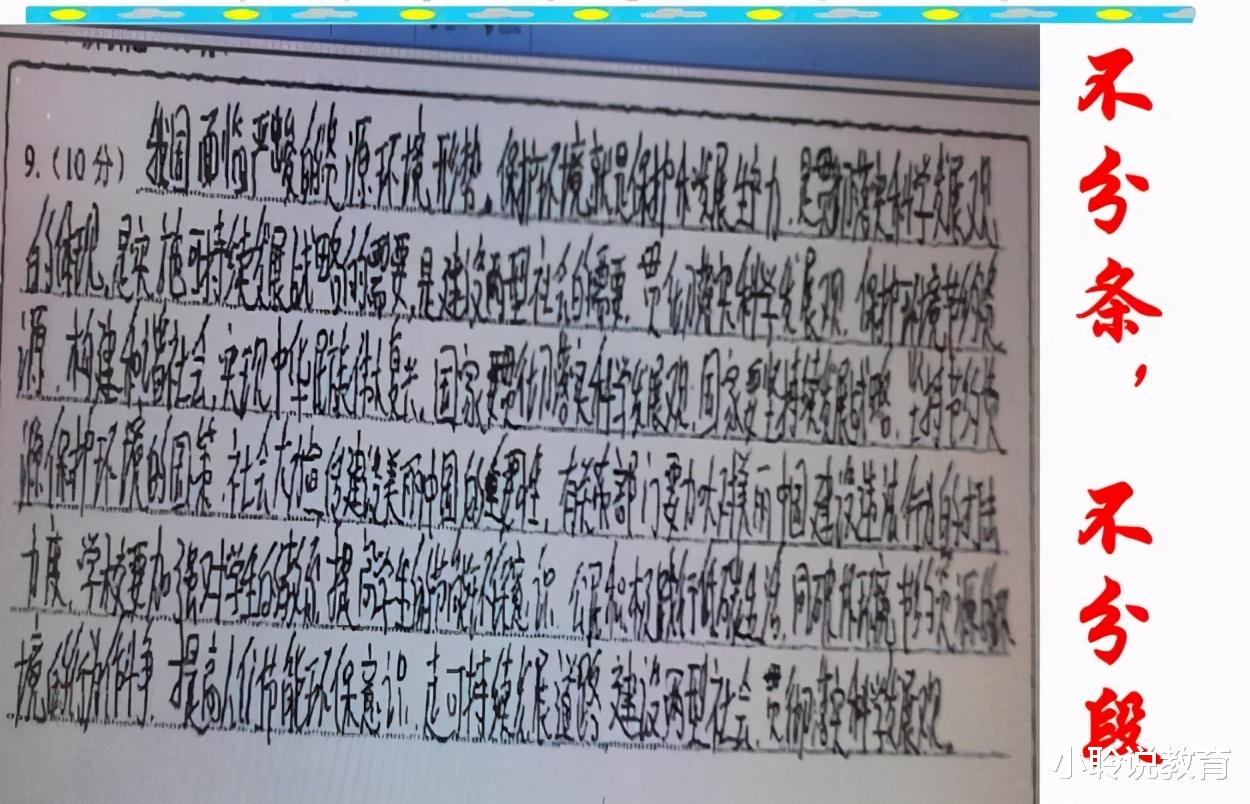 9.(10分) 我国面临严峻的资源环境形势,保护环境就是保护和发展生产力,是贯彻落实科学发展观
的体现,是实施可持续发展战略的需要,是建设两型社会的需要,贯彻落实科学发展观,保护环境节约资
源,构建和谐社会,实现中华民族伟大复兴,国家要贯彻落实科学发展观,国家要坚持持续发展战略,坚持节约资
源保护环境的国策,社会大力宣传建设美丽中国的重要性,有关部门要加大对美丽中国建设违法行为的打击
力度,学校要加强对学生的教育,提高学生的节能环保意识,积极践行低碳生活,同破坏环境,
境的行为作斗争,提高人们节能环保意识,走可持续发展道路,建设两型社会,贯彻落实科学发展观
不分条,
不分段
小聆说教育